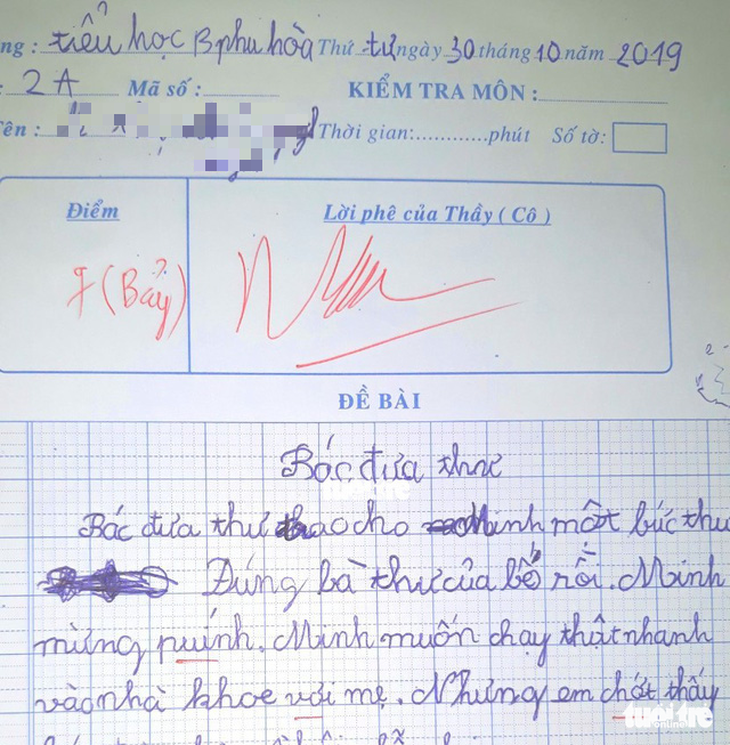 ng : tiểu học B phu hòa Thứ tư ngày 30 tháng 10 năm 2019
: 2 A Mã số : KIỂM TRA MÔN :
Tên : Thời gian:............phút Số tờ:
Điểm Lời phê của Thầy ( Cô )
7 (Bảy)
ĐỀ BÀI
Bác đưa thư
Bác đưa thư trao cho Minh một bức thư
Đúng là thư của bố rồi. Minh
mừng puính. Minh muốn chạy thật nhanh
vào nhà khoe với mẹ. Nhưng em chợt thấy
tuổi trẻ
online